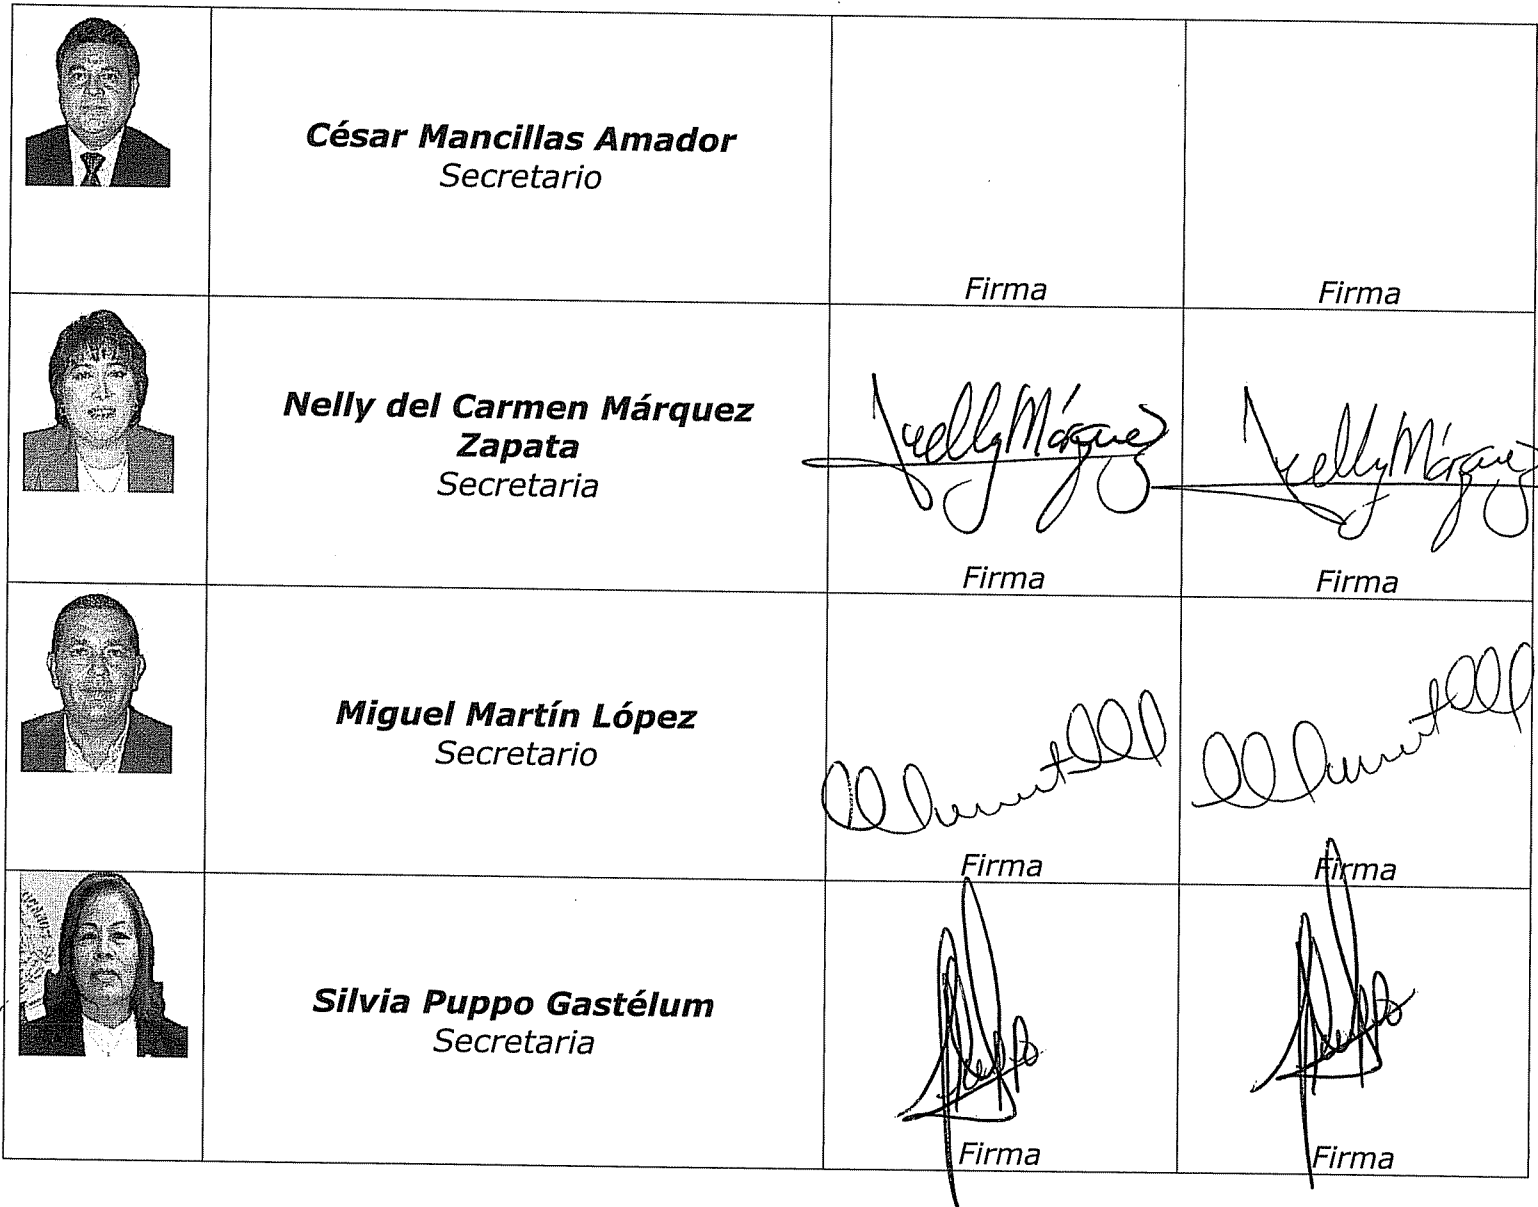 César Mancillas Amador
Secretario
Firma
Firma
Nelly del Carmen Márquez
Zapata
Secretaria
Nelly Márquez
Nelly Márquez
Firma
Firma
Miguel Martín López
Secretario
Firma
Firma
Silvia Puppo Gastélum
Secretaria
Firma
Firma